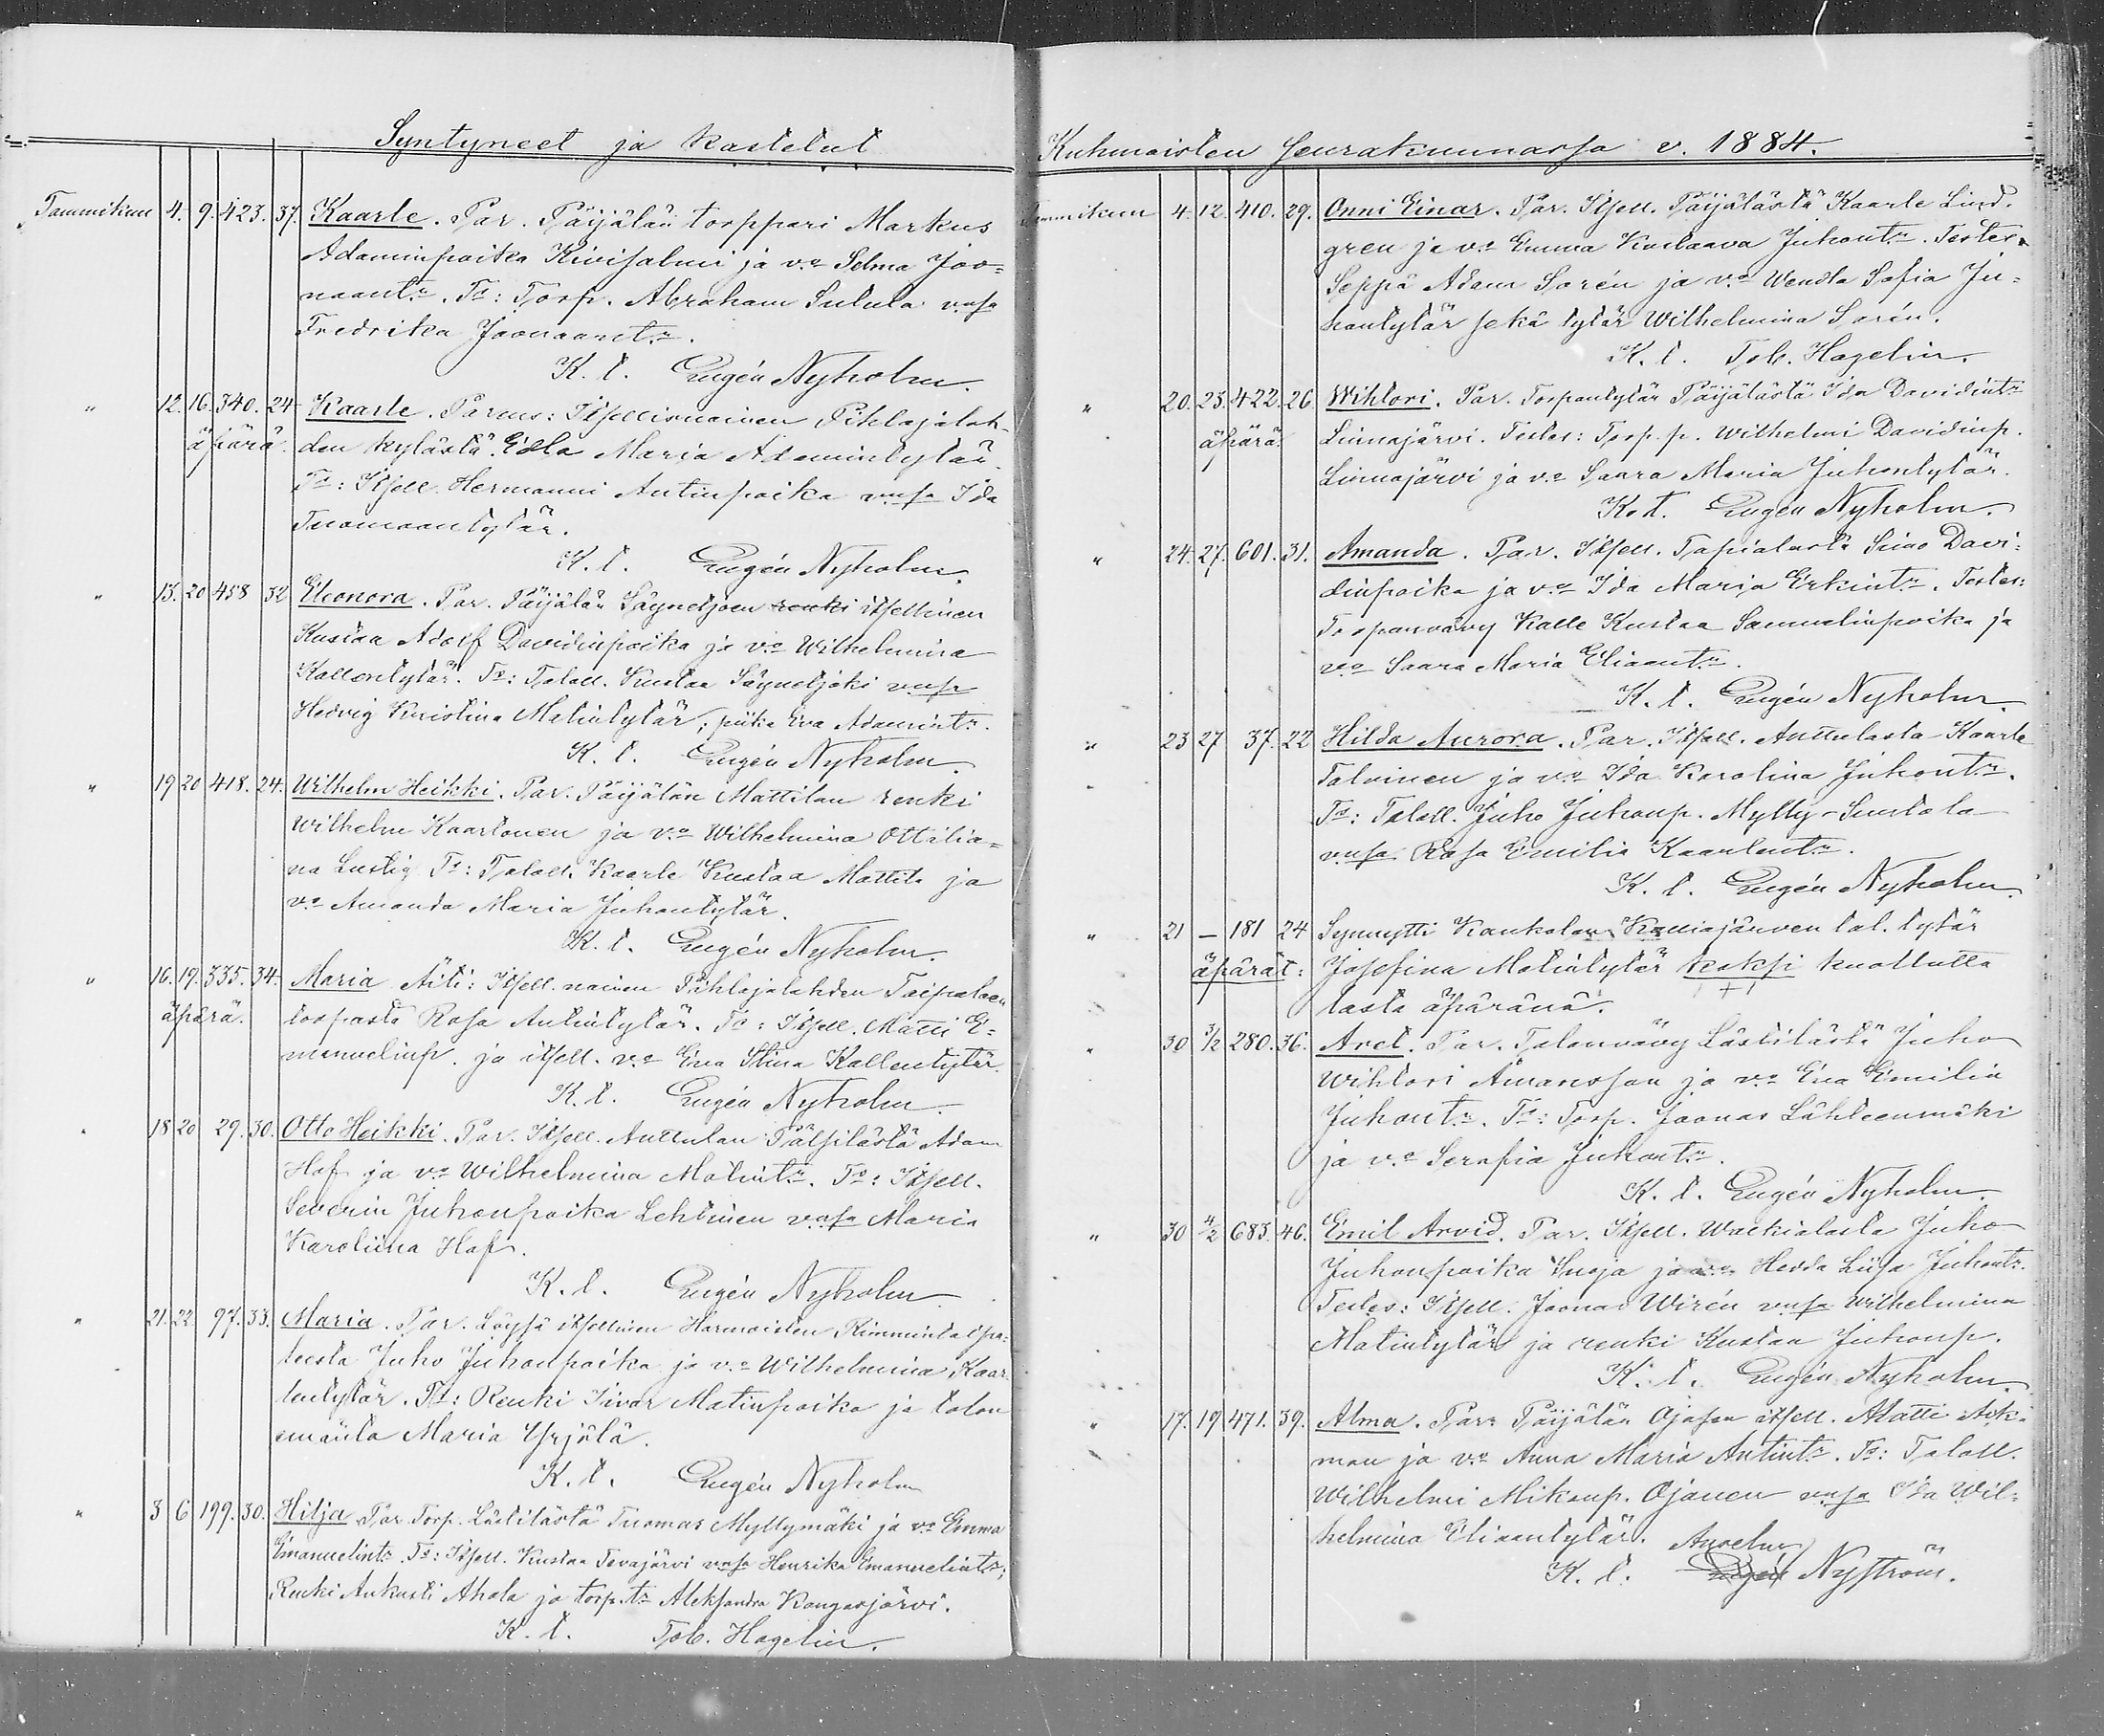 Syntyneet ja Kastetut
Tammikuu 4. 9. 423. 37. Kaarle. Par. Päijälän torppari Markus
Adaminpoika Kivisalmi ja v:o Selma Joo=
naant:r. T:s: Torp. Abraham Sulula vmsa
Fredrika Joonaant:r.
K. t. Eugén Nyholm.
" 12. 16. 340. 24 Kaarle. Parens: Itsellisnainen Pihlajalah-
äpärä. den kylästä Edla Maria Adamintytär.
T:s: Itsell. Hermanni Antinpoika vmsa Ida
Tuomaantytär.
K. t. Eugén Nyholm.
" 13. 20 458 32 Eleonora. Par. Päijälän Säynetjoen renki itsellinen
Kustaa Adolf Davidinpoika ja v:o Wilhelmina
Kallentytär. T:s: Taloll. Kustaa Säynetjoki vmsa
Hedvig Kristina Matintytär, piika Eva Adamint:r.
K. t. Eugén Nyholm.
" 19 20 418. 24. Wilhelm Heikki. Par. Päijälän Mattilan renki
Wilhelm Kaartonen ja v:o Wilhelmina Ottilia=
na Lustig T:s: Taloll. Kaarle Kustaa Mattila ja
v:o Amanda Maria Juhontytär.
K. t. Eugén Nyholm.
" 16. 19. 335. 34. Maria Äiti: Itsell. nainen Pihlajalahden Taipaleen
äpärä. torpasta Rosa Antintytär. T:s: Itsell. Matti E=
manuelinp. ja itsell. v:o Eva Stina Kallentytär.
K. t. Eugén Nyholm.
" 18 20 29. 30. Otto Heikki. Par. Itsell. Anttulan Pätsilästä Adam
Hof ja v:o Wilhelmina Matint:r. T:s: Itsell.
Severin Juhonpoika Lehtinen vmsa Maria
Karoliina Hof.
K. t. Eugén Nyholm
" 21. 22 97. 33. Maria. Par. Löysä itsellinen Harmoisten
Juho Juhonpoika ja v:o Wilhelmina Kaar
lentytär. T:s: Renki Iivar Matinpoika ja talon
emäntä Maria Yrjölä.
K. t. Eugén Nyholm
" 3 6 199. 30. Hilja Par. Torp. Lästilästä Tuomas Myllymäki ja v:o Emma
Emanuelint:r T:s: Itsell. Kustaa Tevajärvi vmsa Henrika Emanuelint:r;
Renki Aukusti Ahola ja torp. t:r Aleksandra Kangasjärvi.
K. t. Tob. Hagelin.
Kuhmoisten seurakunnassa v. 1884.
Tammikuu 4. 12. 410. 29. Onni Einar. Par. Itsell. Päijälästä Kaarle Lind.
gren ja v:o Emma Kustaava Juhont:r. Testes:
Seppä Adam Sorén ja v:o Wendla Sofia Ju=
hontytär sekä tytär Wilhelmina Sorén.
K. t. Tob. Hagelin.
" 20. 23. 422. 26 Wihtori. Par. Torpantytär Päijälästä Ida Davidint:r
äpärä. Linnajärvi. Testes: Torp. p. Wilhelmi Davidinp.
Linnajärvi ja v:o Saara Maria Juhontytär.
K. t. Eugén Nyholm.
" 24. 27. 601. 31. Amanda. Par. Itsell. Tapialasta Simo Davi=
dinpoika ja v:o Ida Maria Erkint:r. Testes:
Torpanvävy Kalle Kustaa Samuelinpoika ja
v:o Saara Maria Eliaant:r.
K. t. Eugén Nyholm.
" 23 27 37. 22 Hilda Aurora. Par. Itsell. Anttulasta Kaarle
Talvinen ja v:o Ida Karolina Juhont:r.
T:s: Taloll. Juho Juhonp. Mylly-Suutala
vmsa Rosa Emilia Kaarlent:r.
K. t. Eugén Nyholm
" 21 – 181 24 Synnytti Kaukolan tal. tytär
äpärät: Josefina Matintytär kaksi kuollutta
lasta äpäränä.
30 3/2 280. 36. Axel. Par. Talonvävy Lästilästä Juho
Wihtori ja v:o Eva Emilia
Juhont:r. T:s: Torp. Joonas Lähteenmäki
ja v:o Serafia Juhont:r.
K. t. Eugén Nyholm.
" 30 4/2 683. 46. Emil Arvid. Par. Itsell. Juho
Juhonpoika Suoja ja v:o Hedda Liisa Juhont:r.
Testes: Itsell. Joonas Wirén vmsa Wilhelmina
Matintytär ja renki Kustaa Juhonp.
K. t. Eugén Nyholm.
" 17. 19 471. 39. Alma. Par. Päijälän Ojasen itsell. Matti Ack=
man ja v:o Anna Maria Antint:r. T:s: Taloll.
Wilhelmi Mikonp. Ojanen vmsa Ida Wil=
helmina Eliaantytär.
K. t. Anselm Eugén Nyström.